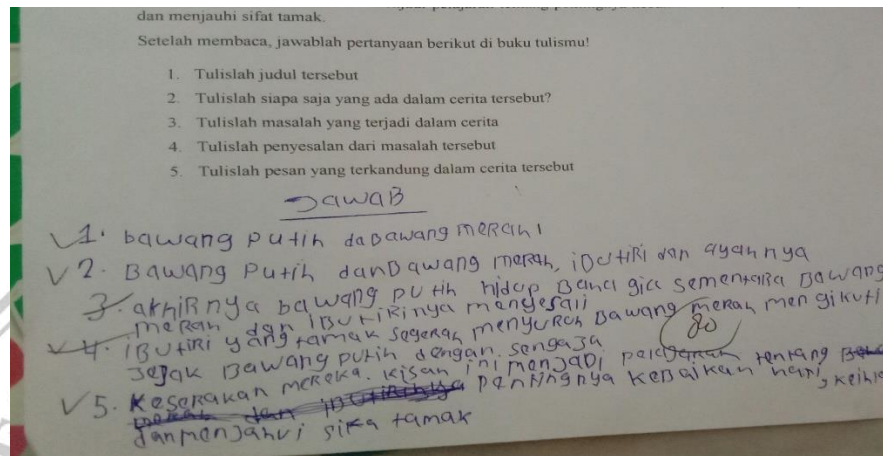 dan menjauhi sifat tamak.
Setelah membaca, jawablah pertanyaan berikut di buku tulismu!
1. Tulislah judul tersebut
2. Tulislah siapa saja yang ada dalam cerita tersebut?
3. Tulislah masalah yang terjadi dalam cerita
4. Tulislah penyesalan dari masalah tersebut
5. Tulislah pesan yang terkandung dalam cerita tersebut
JawaB
1. bawang putih daBawang meRah
2. Bawang Putih danBawang meRah, iButiRi dan ayahnya
3. akhiRnya bawang putih hidup Bahagia sementaRa Bawang
meRah dan iButiRinya menyesali
4. iButiRi yang tamak segeRah menyuRuh Bawang meRah mengikuti
80
Jejak Bawang putih dengan sengaja
5. KeseRakan meReka. Kisah ini menjaDi pelajaRan tentang
pentingnya KeBaikan hati,
dan menjahui sika tamak